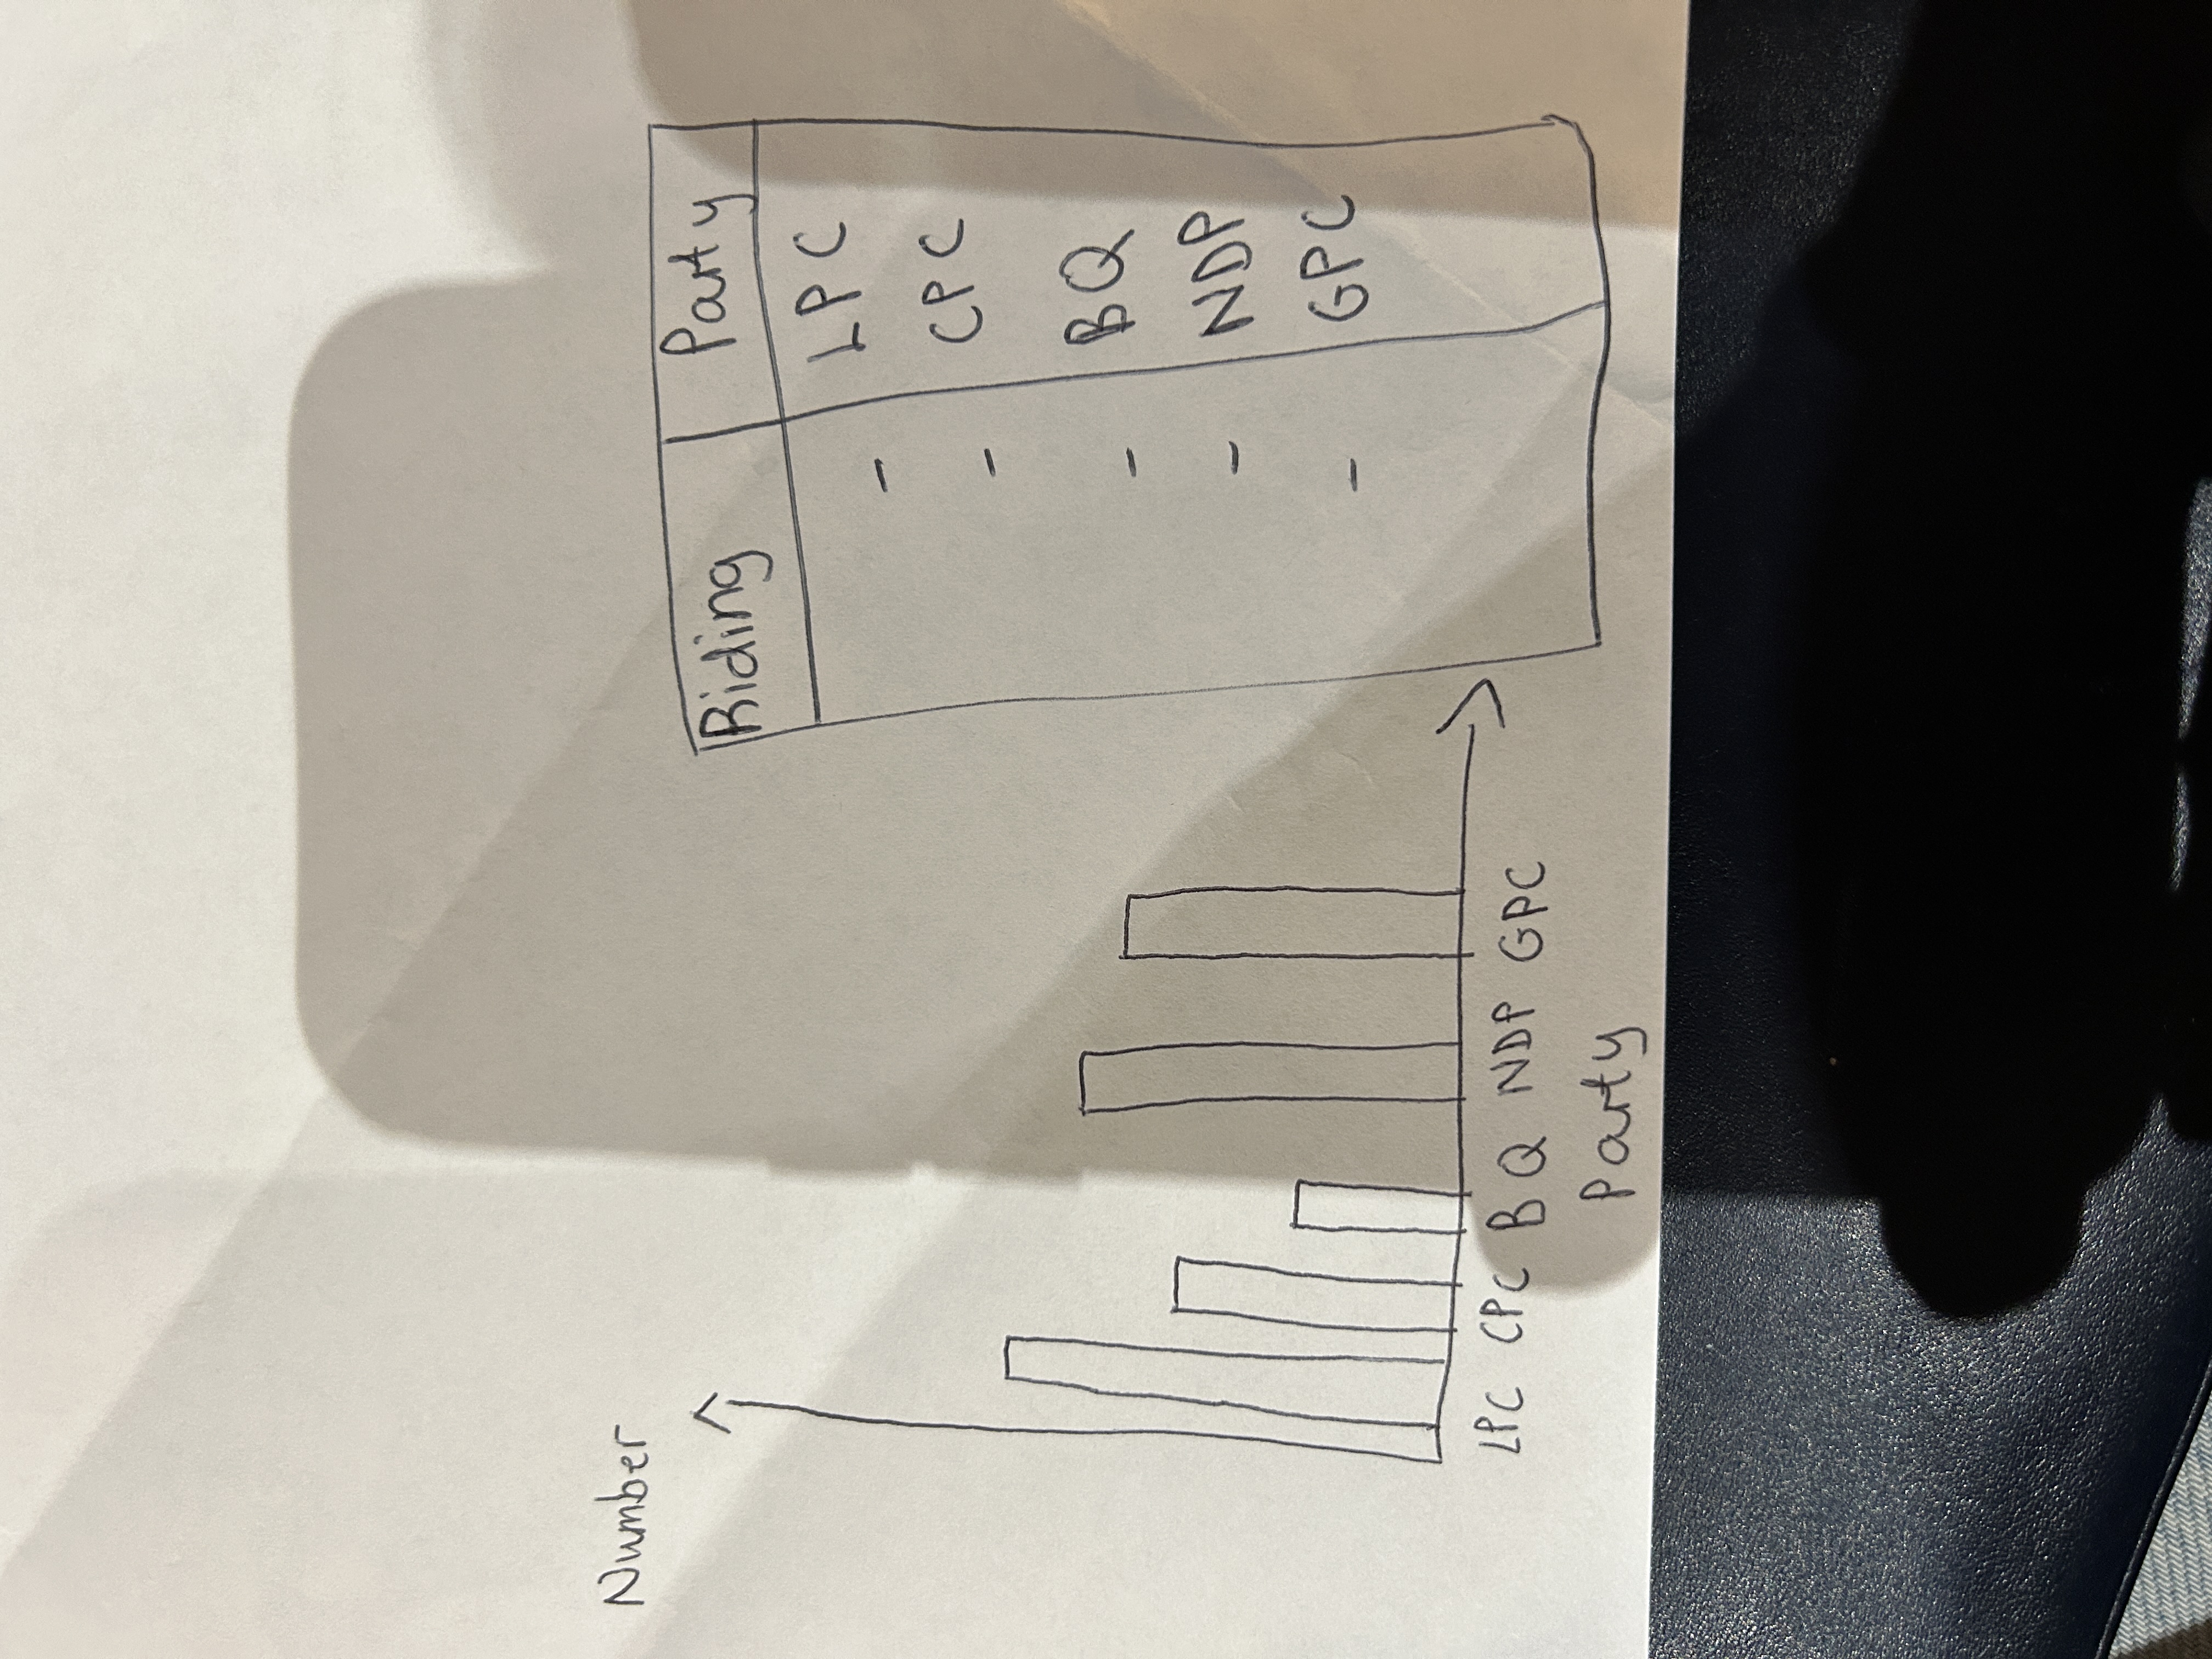 Number
LPC CPC BQ NDP GPC
Party
Riding Party
- LPC
- CPC
- BQ
- NDP
- GPC